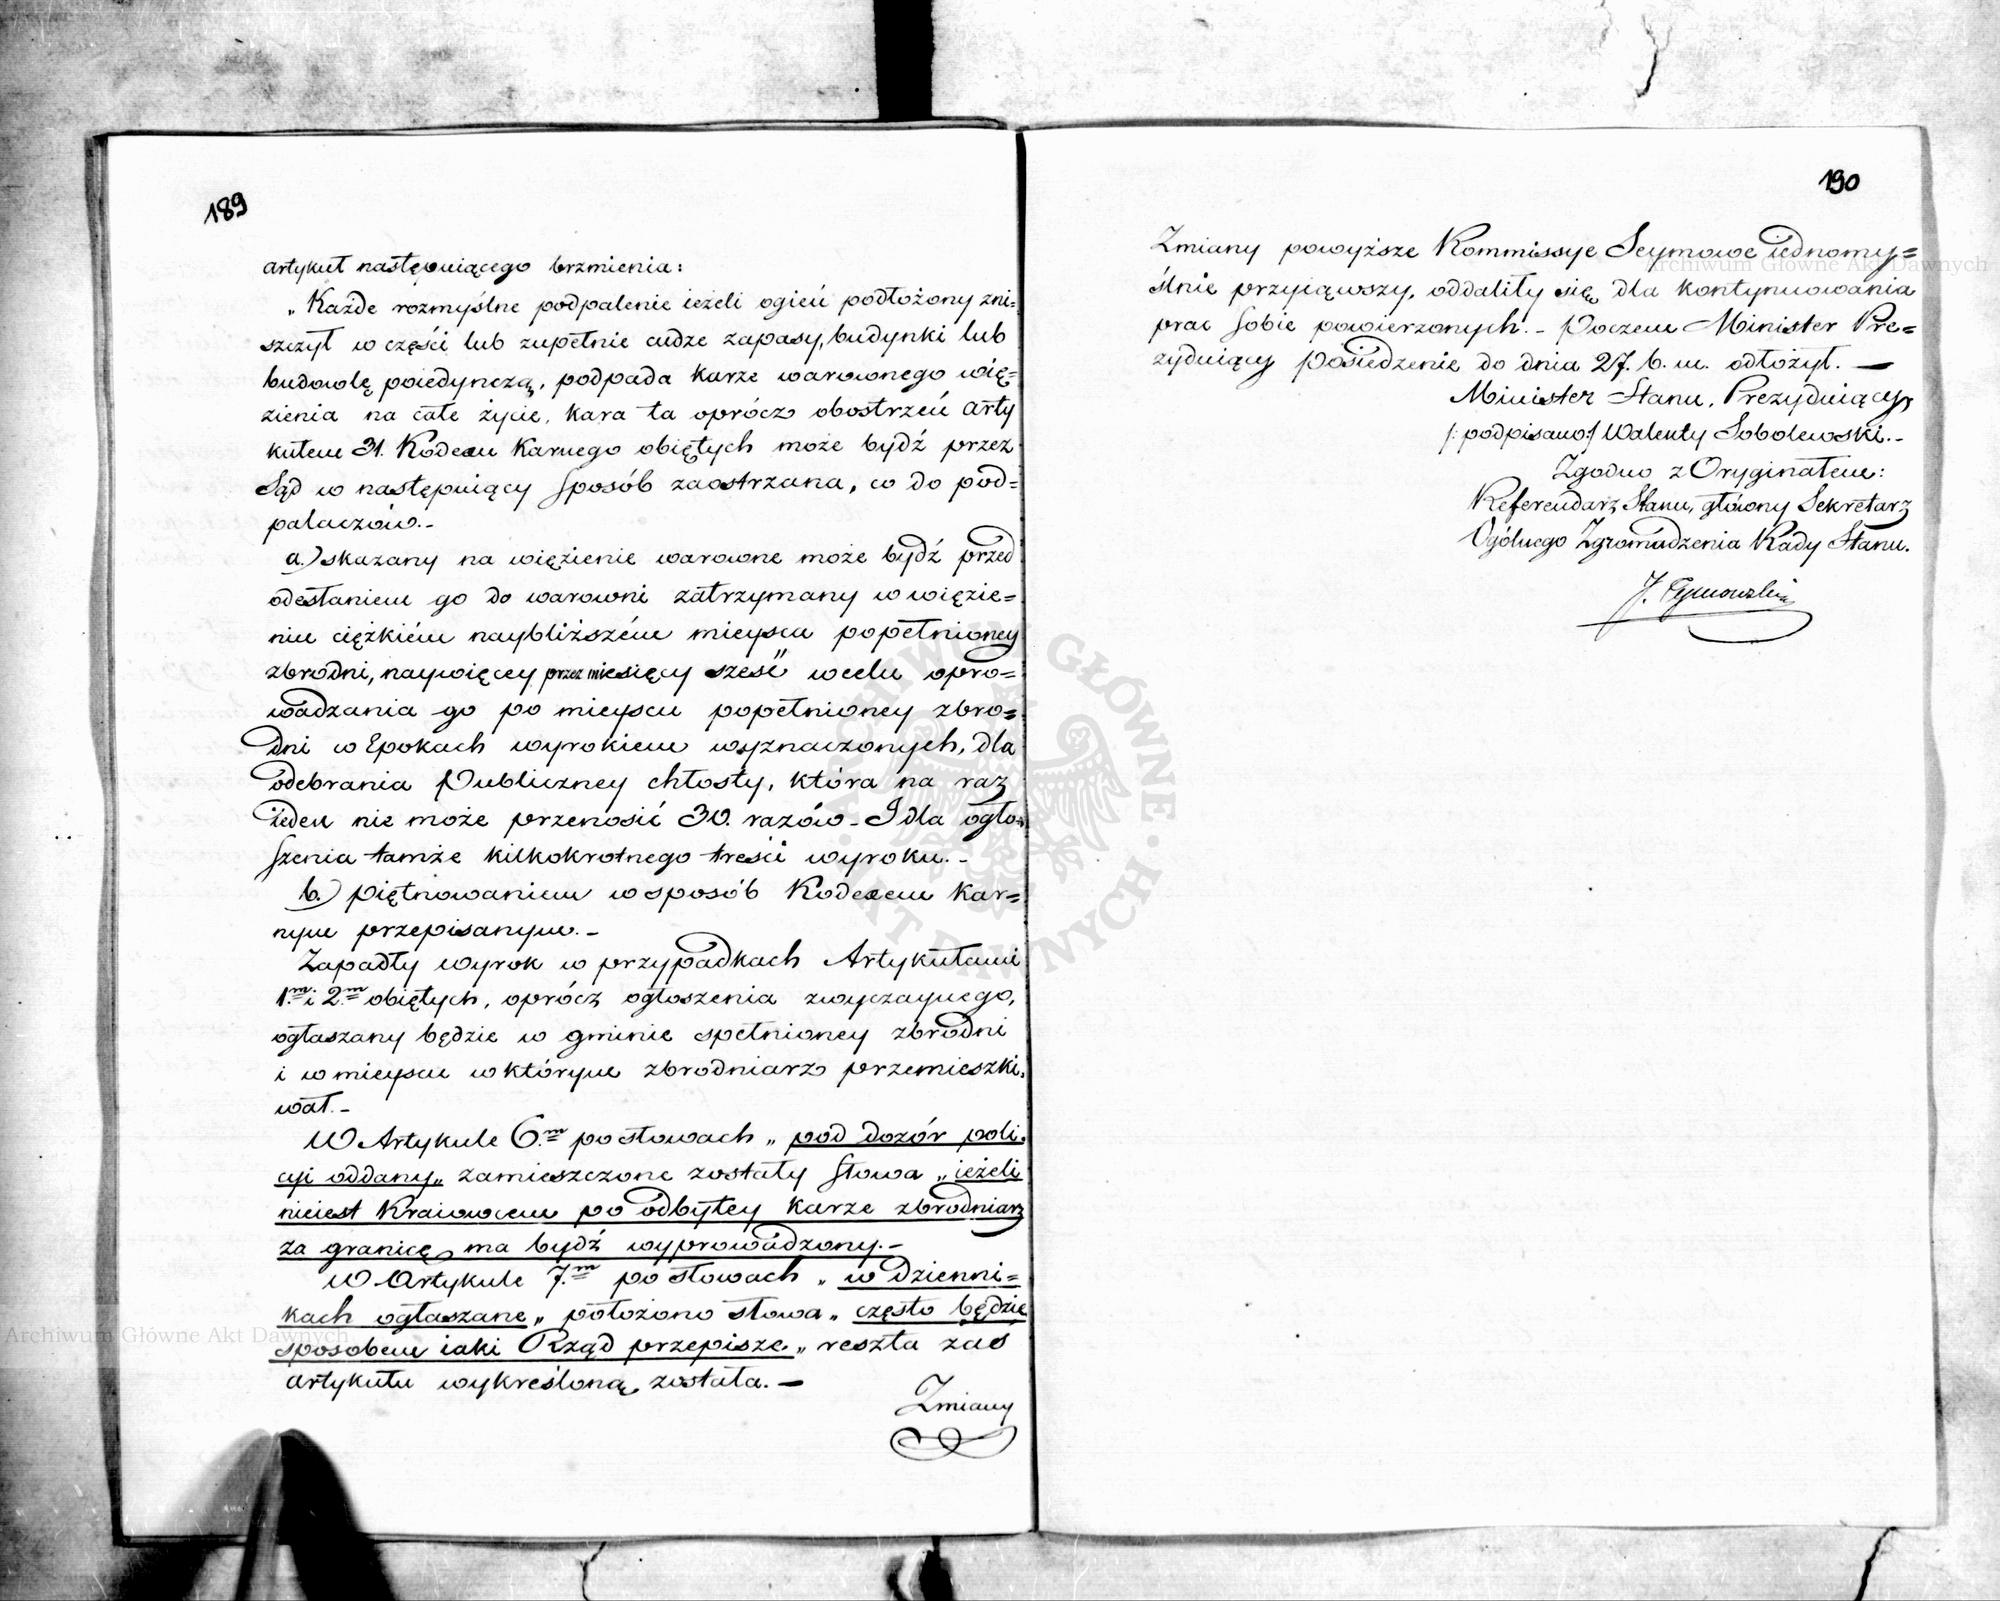 189
artykuł następuiącego brzmienia:
„Każde rozmyślne podpalenie ieżeli ogień podłożony zni=
szczył w części lub zupełnie cudze zapasy, budynki lub
budowlę poiedynczą, podpada karze warownego wię=
zienia na całe życie, kara ta oprócz obostrzeń arty
kułem 31. Kodexu Karnego obiętych może bydź przez
Sąd w następuiący sposób zaostrzana, co do pod=
palaczów.-
a.) skazany na więzienie warowne może bydź przed
odesłaniem go do warowni zatrzymany w więzie=
niu ciężkiém naybliższém mieysca popełnioney
zbrodni, naywięcey przez miesięcy sześć w celu opro=
wadzania go po mieyscu popełnioney zbro=
dni w Epokach wyrokiem wyznaczonych, dla
odebrania Publiczney chłosty, która na raz
ieden nie może przenosić 30. razów - I dla ogło=
szenia tamże kilkokrotnego treści wyroku.-
b.) piętnowaniem w sposób Kodexem Kar=
nym przepisanym.-
Zapadły wyrok w przypadkach Artykułami
1.m i 2.m obiętych, oprócz ogłoszenia zwyczaynego,
ogłaszany będzie w gminie spełnioney zbrodni
i w mieyscu w którym zbrodniarz przemieszki=
wał.-
W Artykule 6.m po słowach „pod dozór poli=
cyi oddany„ zamieszczone zostały słowa „ieżeli
nieiest Kraiowcem po odbytey karze zbrodniarz
za granicę ma bydź wyprowadzony.-
W Artykule 7.m po słowach „w dzienni=
kach ogłaszane„ położono słowa „często będzie
sposobem iaki Rząd przepisze„ reszta zaś
artykułu wykreśloną została.-
Zmiany
190
Zmiany powyższe Kommissye Seymowe iednomy=
ślnie przyiąwszy, oddaliły się dla kontynuowania
prac sobie powierzonych.- Poczem Minister Pre=
zyduiący posiedzenie do dnia 27. b. m. odłożył.-
Minister Stanu, Prezyduiący
/: podpisano:/ Walenty Sobolewski.-
Zgodno z Oryginałem:
Referendarz Stanu, główny Sekretarz
Ogólnego Zgromadzenia Rady Stanu.
J. Tymowski
Archiwum Główne Akt Dawnych
Archiwum Główne Akt Dawnych
ARCHIWUM GŁÓWNE AKT DAWNYCH